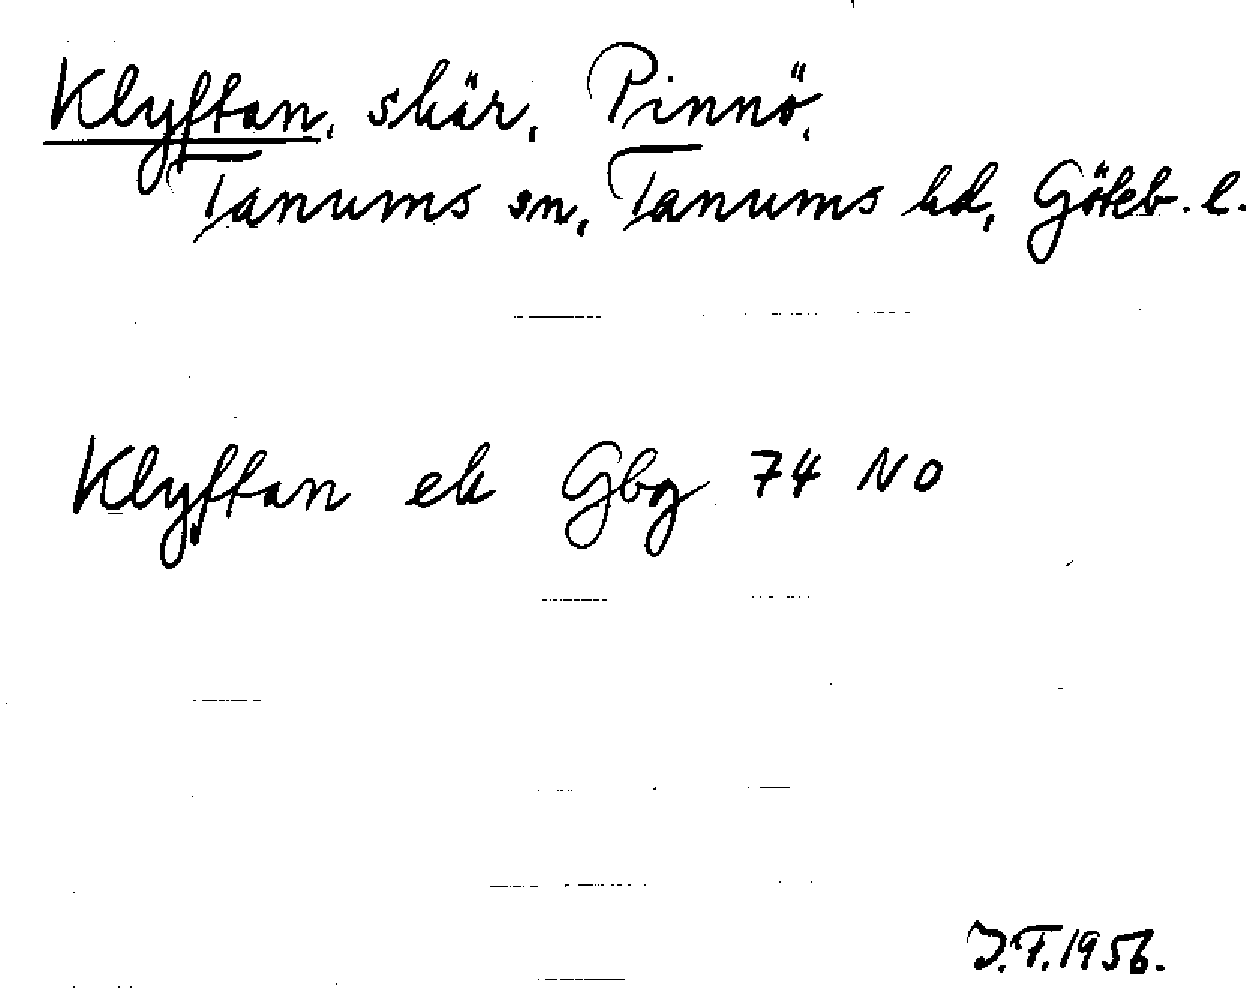 Klyftan, skär, Pinnö,
Tanums sn, Tanums hd, Göteb. l.
Klyftan ek Gbg 74 NO
J.F. 1956.